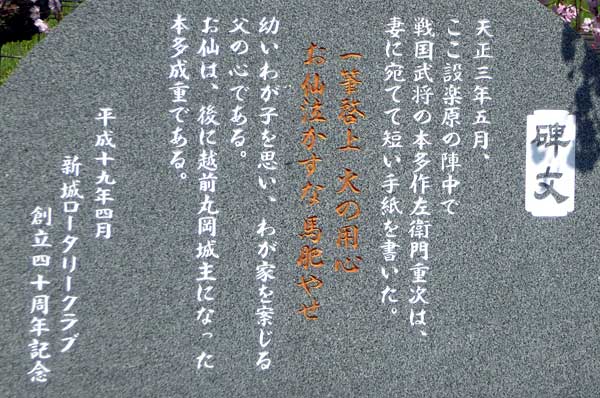 碑文
天正三年五月、
ここ設楽原の陣中で
戦国武将の本多作左衛門重次は、
妻に宛てて短い手紙を書いた。
一筆啓上 火の用心
お仙泣かすな 馬肥やせ
幼いわが子を思い、わが家を案じる
父の心である。
お仙は、後に越前丸岡城主になった
本多成重である。
平成十九年四月
新城ロータリークラブ
創立四十周年記念